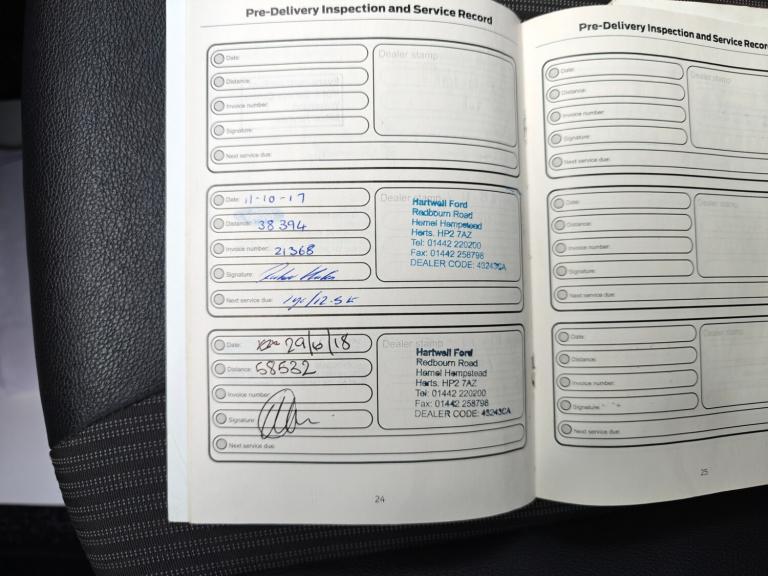 Pre-Delivery Inspection and Service Record
Date:
Distance:
Invoice number:
Signature:
Next service due:
Dealer stamp
Date: 11-10-17
Distance: 38394
Invoice number: 21368
Signature:
Next service due: 1yr/12.5k
Dealer stamp
Hartwell Ford
Redbourn Road
Hemel Hempstead
Herts. HP2 7AZ
Tel: 01442 220200
Fax: 01442 258798
DEALER CODE: 48243CA
Date: 29/6/18
Distance: 58532
Invoice number:
Signature:
Next service due:
Dealer stamp
Hartwell Ford
Redbourn Road
Hemel Hempstead
Herts. HP2 7AZ
Tel: 01442 220200
Fax: 01442 258798
DEALER CODE: 48243CA
24
Pre-Delivery Inspection and Service Recor
Date:
Distance:
Invoice number:
Signature:
Next service due:
Dealer stamp
Date:
Distance:
Invoice number:
Signature:
Next service due:
Dealer stamp
Date:
Distance:
Invoice number:
Signature:
Next service due:
Dealer stamp
25